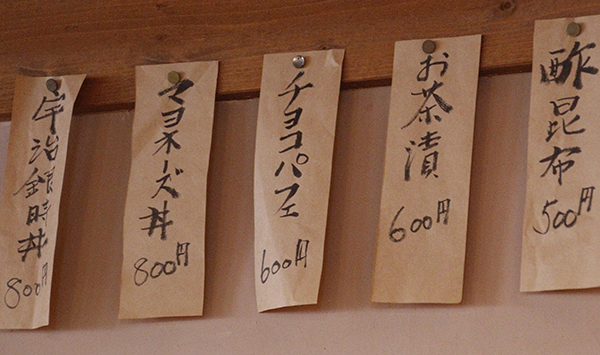 酢昆布
500円
お茶漬
600円
チョコパフェ
600円
マヨネーズ丼
800円
宇治銀時丼
800円